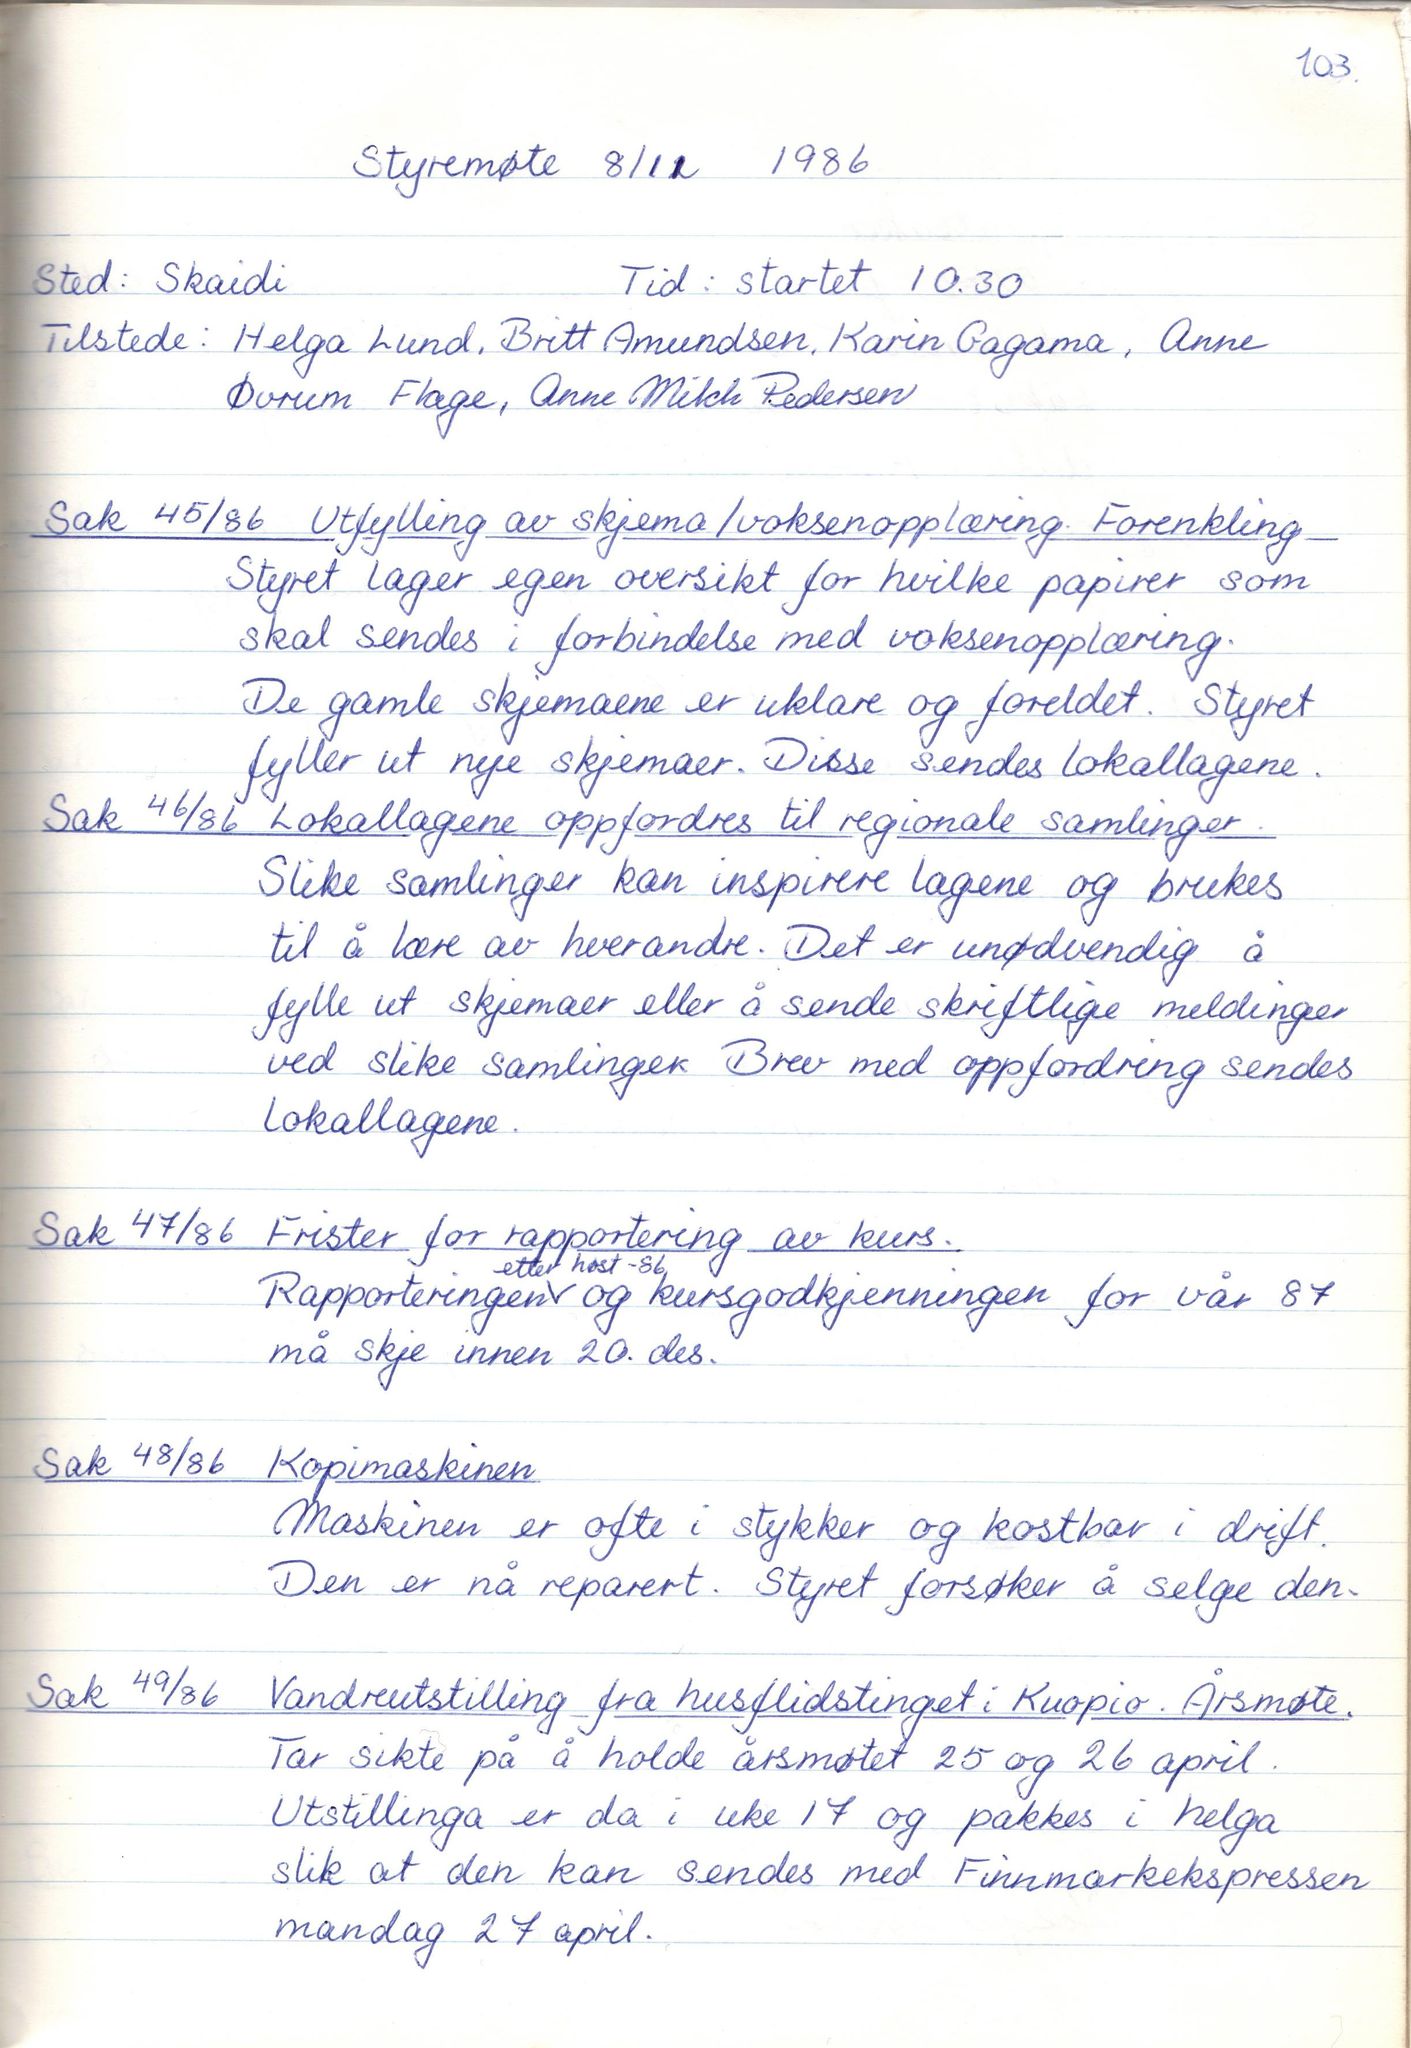 103.
Styremøte 8/12 1986
Sted: Skaidi Tid: startet 10.30
Tilstede: Helga Lund, Britt Amundsen, Karin Gagama, Anne
Øvrum Flage, Anne Milch Pedersen
Sak 45/86 Utfylling av skjema/voksenopplæring. Forenkling
Styret lager egen oversikt for hvilke papirer som
skal sendes i forbindelse med voksenopplæring.
De gamle skjemaene er uklare og foreldet. Styret
fyller ut nye skjemaer. Disse sendes lokallagene.
Sak 46/86 Lokallagene oppfordres til regionale samlinger.
Slike samlinger kan inspirere lagene og brukes
til å lære av hverandre. Det er unødvendig å
fylle ut skjemaer eller å sende skriftlige meldinger
ved slike samlinger. Brev med oppfordring sendes
lokallagene.
Sak 47/86 Frister for rapportering av kurs.
etter høst -86
Rapporteringen og kursgodkjenningen for vår 87
må skje innen 20. des.
Sak 48/86 Kopimaskinen
Maskinen er ofte i stykker og kostbar i drift.
Den er nå reparert. Styret forsøker å selge den.
Sak 49/86 Vandreutstilling fra husflidstinget i Kuopio. Årsmøte.
Tar sikte på å holde årsmøtet 25 og 26 april.
Utstillinga er da i uke 17 og pakkes i helga
slik at den kan sendes med Finnmarkekspressen
mandag 27 april.